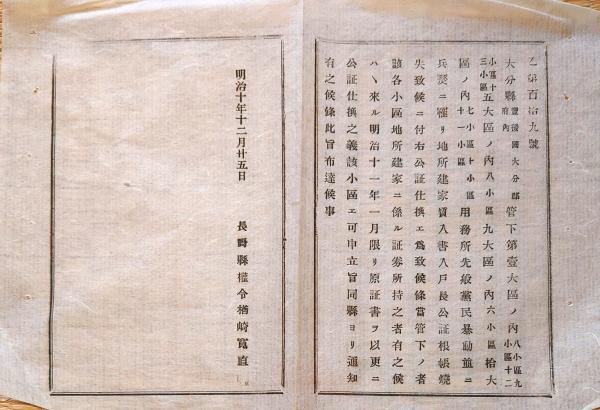 乙第百拾九號
大分縣豐後國大分郡府內管下第壹大區ノ內八小區九小區十二
小區十三小區五大區ノ內八小區九大區ノ內六小區拾大
區ノ內七小區十小區十一小區用務所先般黨民暴動並ニ
兵燹ニ罹リ地所建家質入書入戶長公証根帳燒
失致候ニ付右公証仕換エ爲致候條當管下ノ者
該各小區地所建家ニ係ル証劵所持之者有之候
ハヽ來ル明治十一年一月限リ原証書ヲ以更ニ
公証仕換之義該小區エ可申立旨同縣ヨリ通知
有之候條此旨布達候事
明治十年十二月廿五日
長野縣權令楢崎寬直